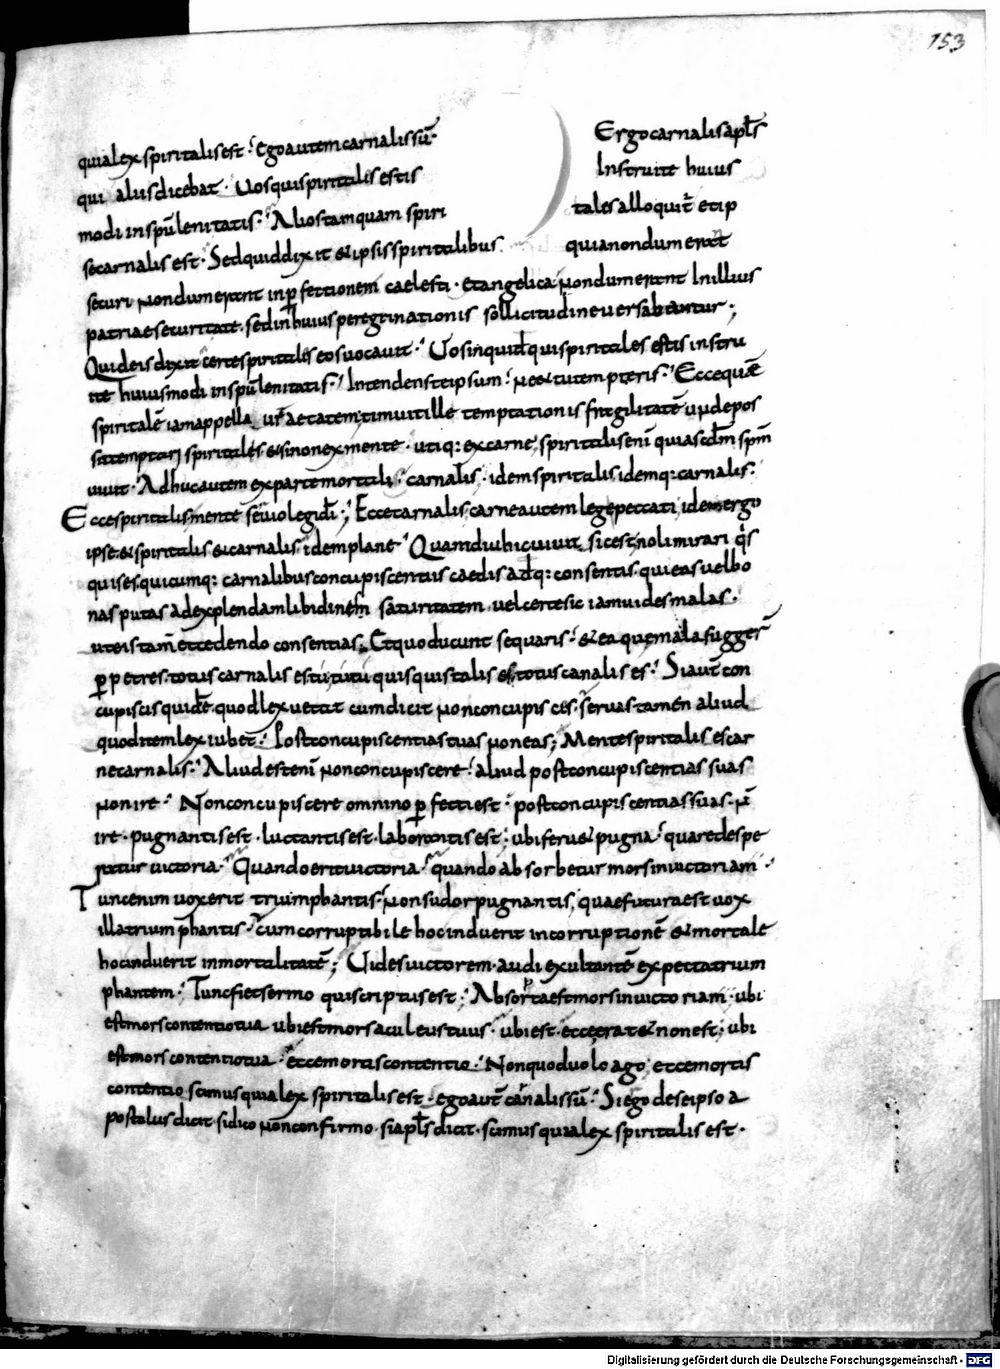 153
quia lex spiritalis est · Ego autem carnalis sū · Ergo carnalis apl̄s
qui aliis dicebat · Uos qui spiritalis estis Instruite huius
modi in sp̄u lenitatis · Alios tamquam spiri tales alloquit̄ et ip
se carnalis est · Sed quid dixit & ipsis spiritalibus quia nondum erant
securi nondum erant in p̄fectionem caelesti · et angelica nondum erant In illius
patriae securitate · sed in huius peregrinationis sollicitudine uersabantur ;
Quid eis dixit certe spiritales eos uocauit · Uos inquid qui spiritales estis instru
ite huiusmodi in sp̄u lenitatis · Intendens teipsum · ne & tu tempteris · Ecce quē
spiritalē iam appella aetatem timuit ille temptationis fragilitatē unde pos
sit temptari spiritales & si non ex mente · utiq: ex carne, spiritalis enī quia scdm̄ spm̄
uiuit · Adhuc autem ex parte mortali · carnalis · idem spiritalis idemq: carnalis ·
Ecce spiritalis mente seruio legi dī ; Ecce carnalis, carne autem lege peccati, idem ergo
ipse & spiritalis & carnalis · idem plane · Quamdiu hic uiuit, sic est, noli mirari q̄s
quis es, quicumq: carnalibus concupiscentiis caedis adq: consentis, qui eas uel bo
nas putas ad explendam libidinem saturitatem, uel certe sic iam uides malas ·
ut eis tam̄ et cedendo consentias ; Et quo ducunt sequaris · & ea que mala sugger̄
p̄petres, totus carnalis es tu tu tu quisquis talis es, totus canalis es · Si aut̄ con
cupiscis quidē quod lex uetat cum dicit non concupisces, seruas tamen aliud
quod item lex iubet · Post concupiscentias tuas non eas ; Mente spiritalis es car
ne carnalis · Aliud est enī non concupiscere · aliud post concupiscentias suas
non ire · Non concupiscere omnino p̄fecti est · post concupiscentias suas · n̄
ire · pugnantis est · luctantis est · laborantis est ; ubi feru& pugna · quare despe
ratur uictoria · Quando erit uictoria · quando absorbetur mors in uictoriam ·
Tunc enim uox erit triumphantis · non sudor pugnantis, quae futura est uox
illa triumphantis · cum corruptibile hoc induerit incorruptionē & mortale
hoc induerit inmortalitatē ; Uides uictorem · audi exultantē expecta trium
phantem · Tunc fiet sermo qui scriptus est · Absorta est mors in uictoriam · ubi
est mors contentio tua ubi est mors aculeus tuus · ubi est · ecce erat & non est ; ubi
est mors contentio tua · ecce mortis contentio · Non quod uolo ago, ecce mortis
contentio scimus quia lex spiritalis est · ego aut̄ carnalis sū · Si ego de se ipso a
postolus dicit · si dico non confirmo · si apl̄s dicit · scimus quia lex spiritalis est ·
Digitalisierung gefördert durch die Deutsche Forschungsgemeinschaft - DFG